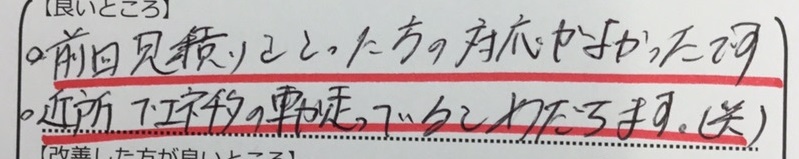 【良いところ】
○前回見積りをとった方の対応がよかったです
○近所でエネチタの車が走っているとわかります。(笑)
【改善した方が良いところ】